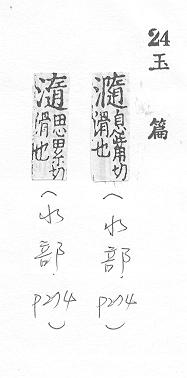 24 玉篇
瀡 息觜切 滑也 (水部. P274)
瀡 思累切 滑也 (水部. P274)